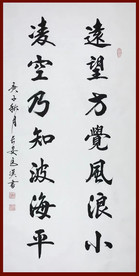 遠望方覺風浪小
凌空乃知波海平
庚子秋月